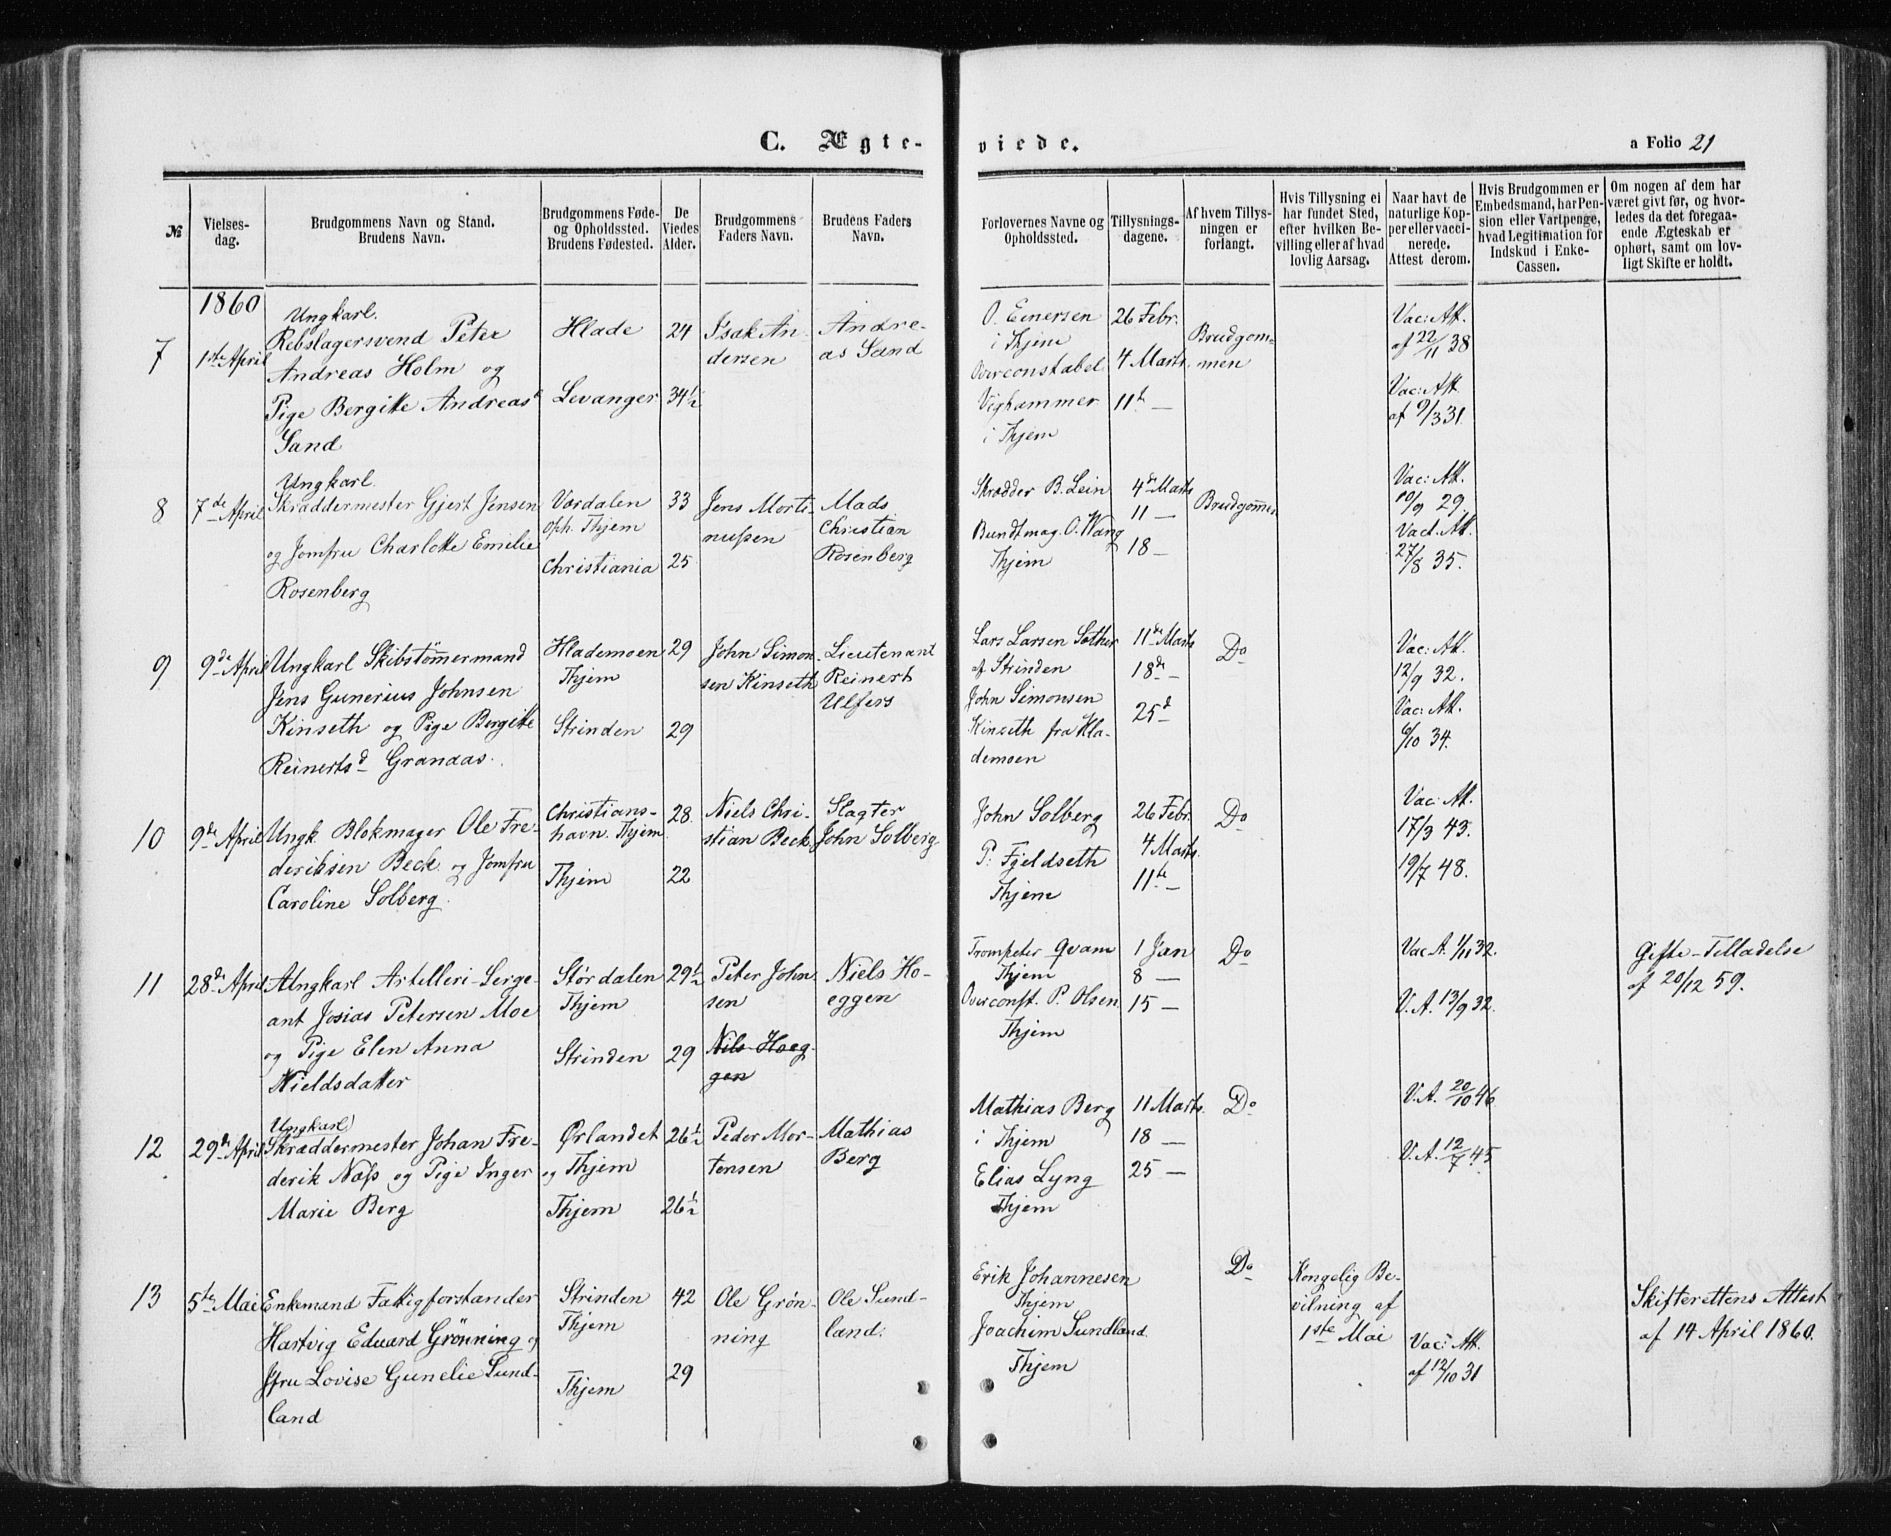 C. Ægte-
viede.
a Folio 21
№
Vielses-
dag.
Brudgommens Navn og Stand.
Brudens Navn.
Brudgommens Føde-
og Opholdssted.
Brudens Fødested.
De
Viedes
Alder.
Brudgommens
Faders Navn.
Brudens Faders
Navn.
Forlovernes Navne og
Opholdssted.
Tillysnings-
dagene.
Af hvem Tillys-
ningen er
forlangt.
Hvis Tillysning ei
har fundet Sted,
efter hvilken Be-
villing eller af hvad
lovlig Aarsag.
Naar havt de
naturlige Kop-
per eller vacci-
nerede.
Attest derom.
Hvis Brudgommen er
Embedsmand, har Pen-
sion eller Vartpenge,
hvad Legitimation for
Indskud i Enke-
Cassen.
Om nogen af dem har
været givt før, og hvor-
ledes da det foregaa-
ende Ægteskab er
ophørt, samt om lov-
ligt Skifte er holdt.
1860
7
1ste April
Ungkarl.
Rebslagersvend Peter
Andreas Holm og
Pige Bergitte Andreasd
Sand
Hlade
Levanger
24
34½
Isak An-
dersen
Andre-
as Sand
O. Einersen
i Thjem
Overconstabel
Vighammer
i Thjem
26 Febr.
4 Marts
11te —
Brudgom-
men
Vac: Att.
af 22/11 38
Vac: Att.
af 9/3 31.
8
7de April
Ungkarl.
Skræddermester Gjert Jensen
og Jomfru Charlotte Emilie
Rosenberg
Værdalen
oph. Thjem
Christiania
33
25
Jens Morti-
nussen
Mads
Christian
Rosenberg
Skrædder B. Lein
Bundtmag. O. Wang
Thjem
4de Marts
11 —
18 —
Brudgommen
Vac: Att.
10/9 29.
Vac. Att.
27/8 35.
9
9de April
Ungkarl Skibstømmermand
Jens Gunerius Johnsen
Kinseth og Pige Bergitte
Reinertsd Granaas.
Hlademoen
Thjem
Strinden
29
29
John Simon-
sen Kinseth
Lieutenant
Reinert
Ulfers
Lars Larsen Sother
af Strinden
John Simonsen
Kinseth fra Hla-
demoen
11te Marts
18de —
25d —
Do
Vac: Att.
12/9 32.
Vac: Att.
6/10 34.
10
9de April
Ungk. Blokmager Ole Fre-
deriksen Beck og Jomfru
Caroline Solberg.
Christians-
havn. Thjem
Thjem
28.
22
Niels Chri-
stian Beck
Slagter
John Solberg
John Solberg
P. Fjeldseth
Thjem
26 Febr.
4 Marts.
11te —
Do
Vac: At.
17/3 43.
19/7 48.
11
28de April
Ungkarl Artelleri-Serge-
ant Josias Petersen Moe
og Pige Elen Anna
Nieldsdatter
Størdalen
Thjem
Strinden
29½
29
Peter John-
sen
Nils Hoeg-
gen
Niels Ho-
eggen
Trompeter Qvam
Thjem
Overconst. P. Olsen
Thjem
1 Jan
8 —
15 —
Do
Vac A. 1/11 32.
V. A. 13/9 32.
Gifte-Tilladelse
af 20/12 59.
12
29de April
Ungkarl
Skræddermester Johan Fre-
derik Næss og Pige Inger
Marie Berg
Ørlandet
og Thjem
Thjem
26½
26½
Peder Mor-
tensen
Mathias
Berg
Mathias Berg
i Thjem
Elias Lyng
Thjem
11 Marts.
18 —
25 —
Do
V. A. 20/10 46
V. A. 12/7 45
13
5te Mai
Enkemand Fattigforstander
Hartvig Eduard Grønning og
Jfru Lovise Gunelie Sund-
land
Strinden
Thjem
Thjem
42
29
Ole Grøn-
ning
Ole Sund-
land.
Erik Johannesen
Thjem
Joachim Sundland.
Thjem
Do
Kongelig Be-
vilning af
1ste Mai
Vac: Att.
af 12/10 31
Skifterettens Attest
af 14 April 1860.